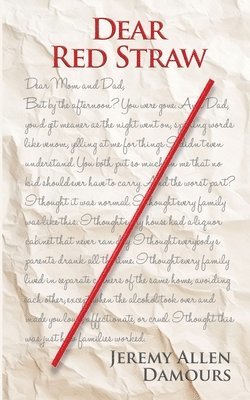 DEAR
RED STRAW
Dear Mom and Dad,
But by the afternoon? You were gone. And Dad,
you'd get meaner as the night went on, sp words
like venom, yelling at me for things I didn't even
understand. You both put so much on me that no
kid should ever have to carry. the worst part?
I thought it was normal. I thought every family
was like this. I thought every house had a liquor
cabinet never ran I thought everybody's
parents drank all the time. I thought every family
lived in separate corners of the same home, avoiding
each other, except when the alcohol took over and
made you love affectionate, or cruel. I thought this
was just how families worked.
JEREMY ALLEN
DAMOURS